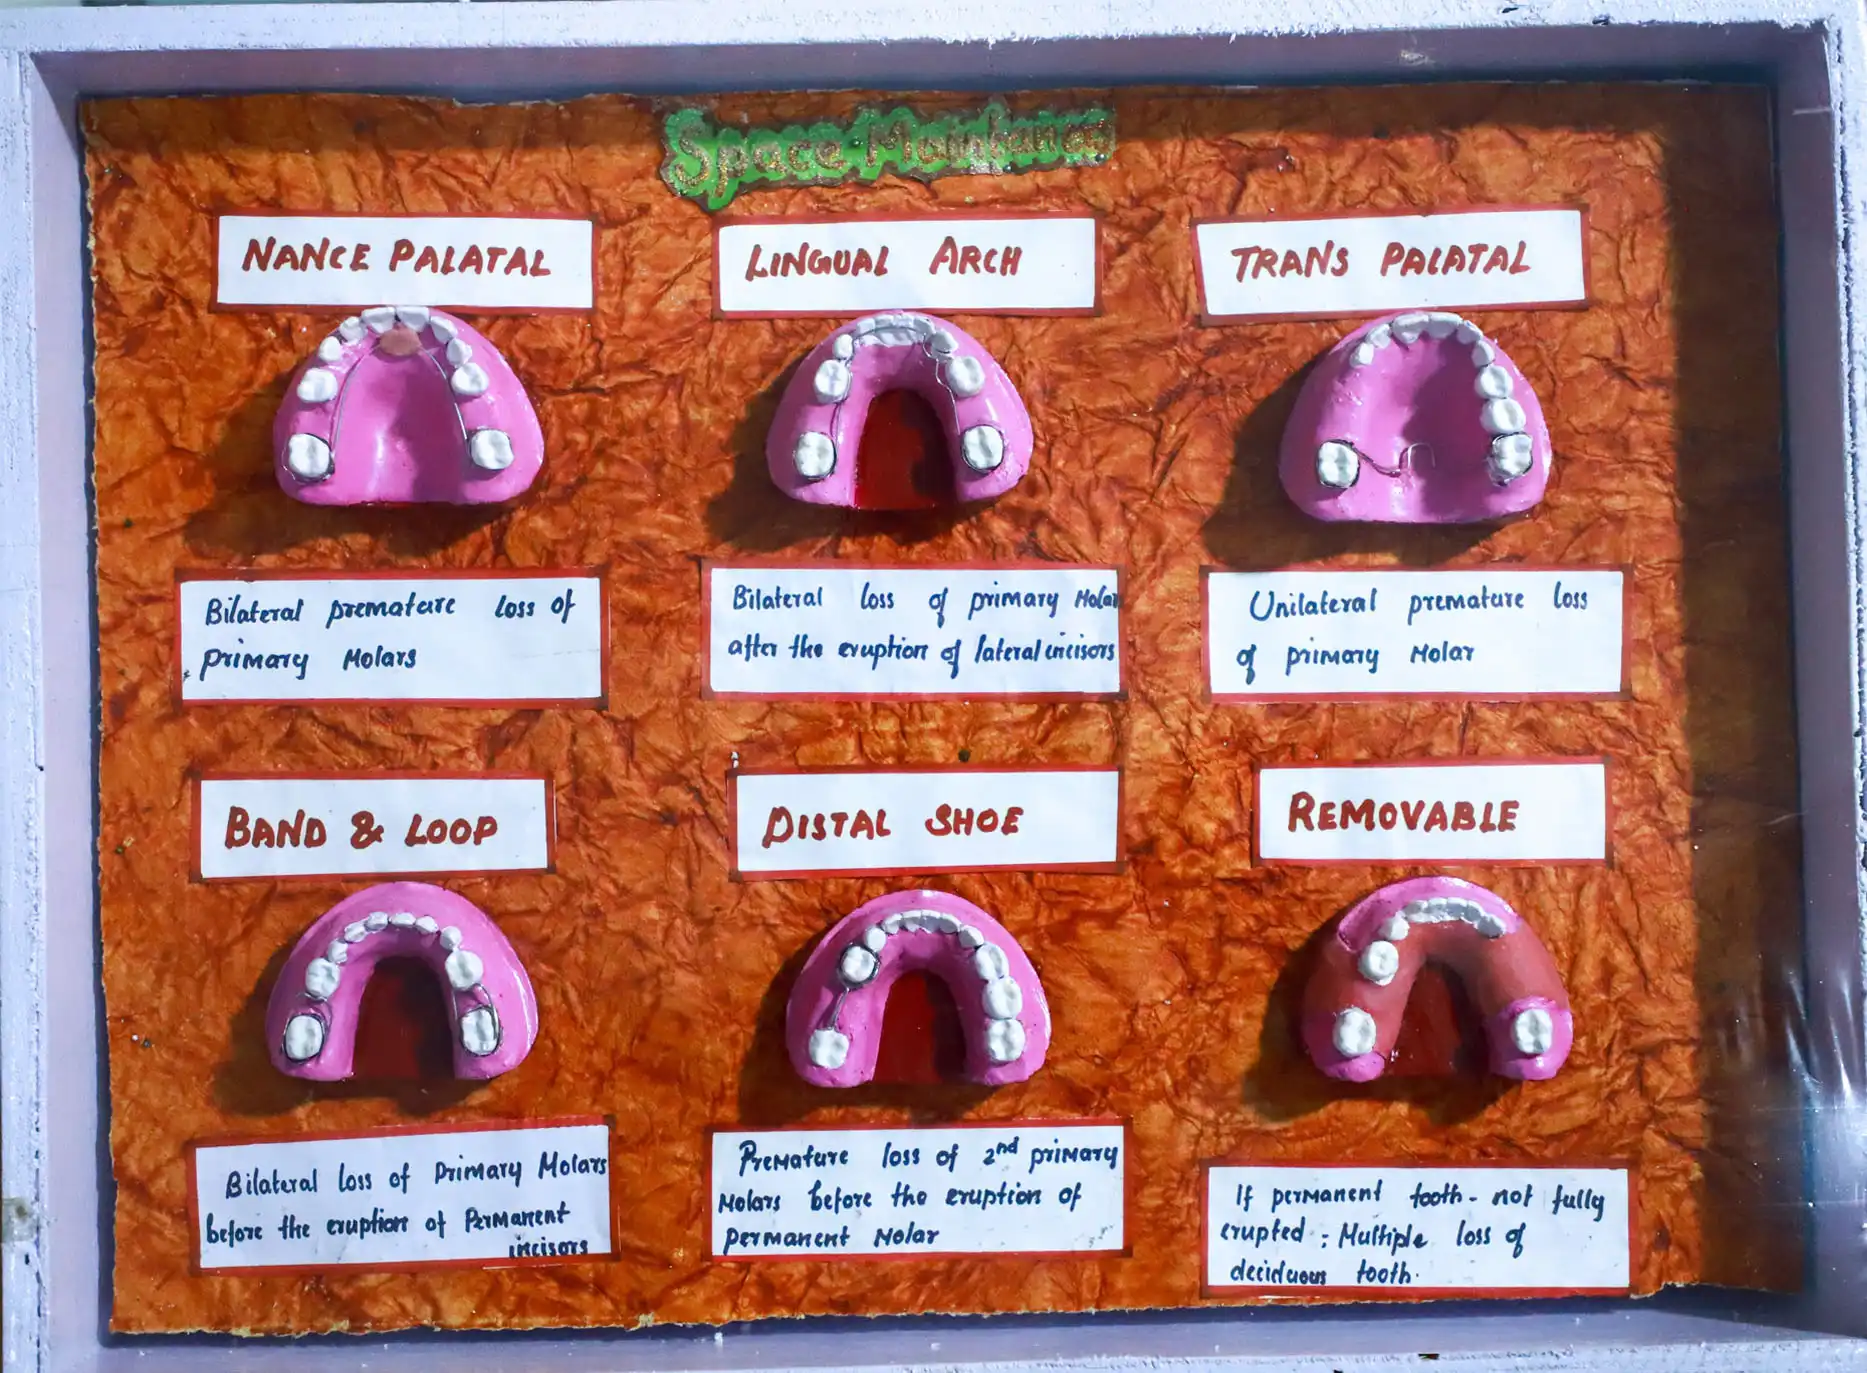 Space Maintainer
NANCE PALATAL
LINGUAL ARCH
TRANS PALATAL
Bilateral premature loss of
primary Molars
Bilateral loss of primary Molar
after the eruption of lateral incisors
Unilateral premature loss
of primary Molar
BAND & LOOP
DISTAL SHOE
REMOVABLE
Bilateral loss of primary Molars
before the eruption of Permanent
incisors
Premature loss of 2nd primary
Molars before the eruption of
permanent Molar
If permanent tooth - not fully
erupted ; Multiple loss of
deciduous tooth.